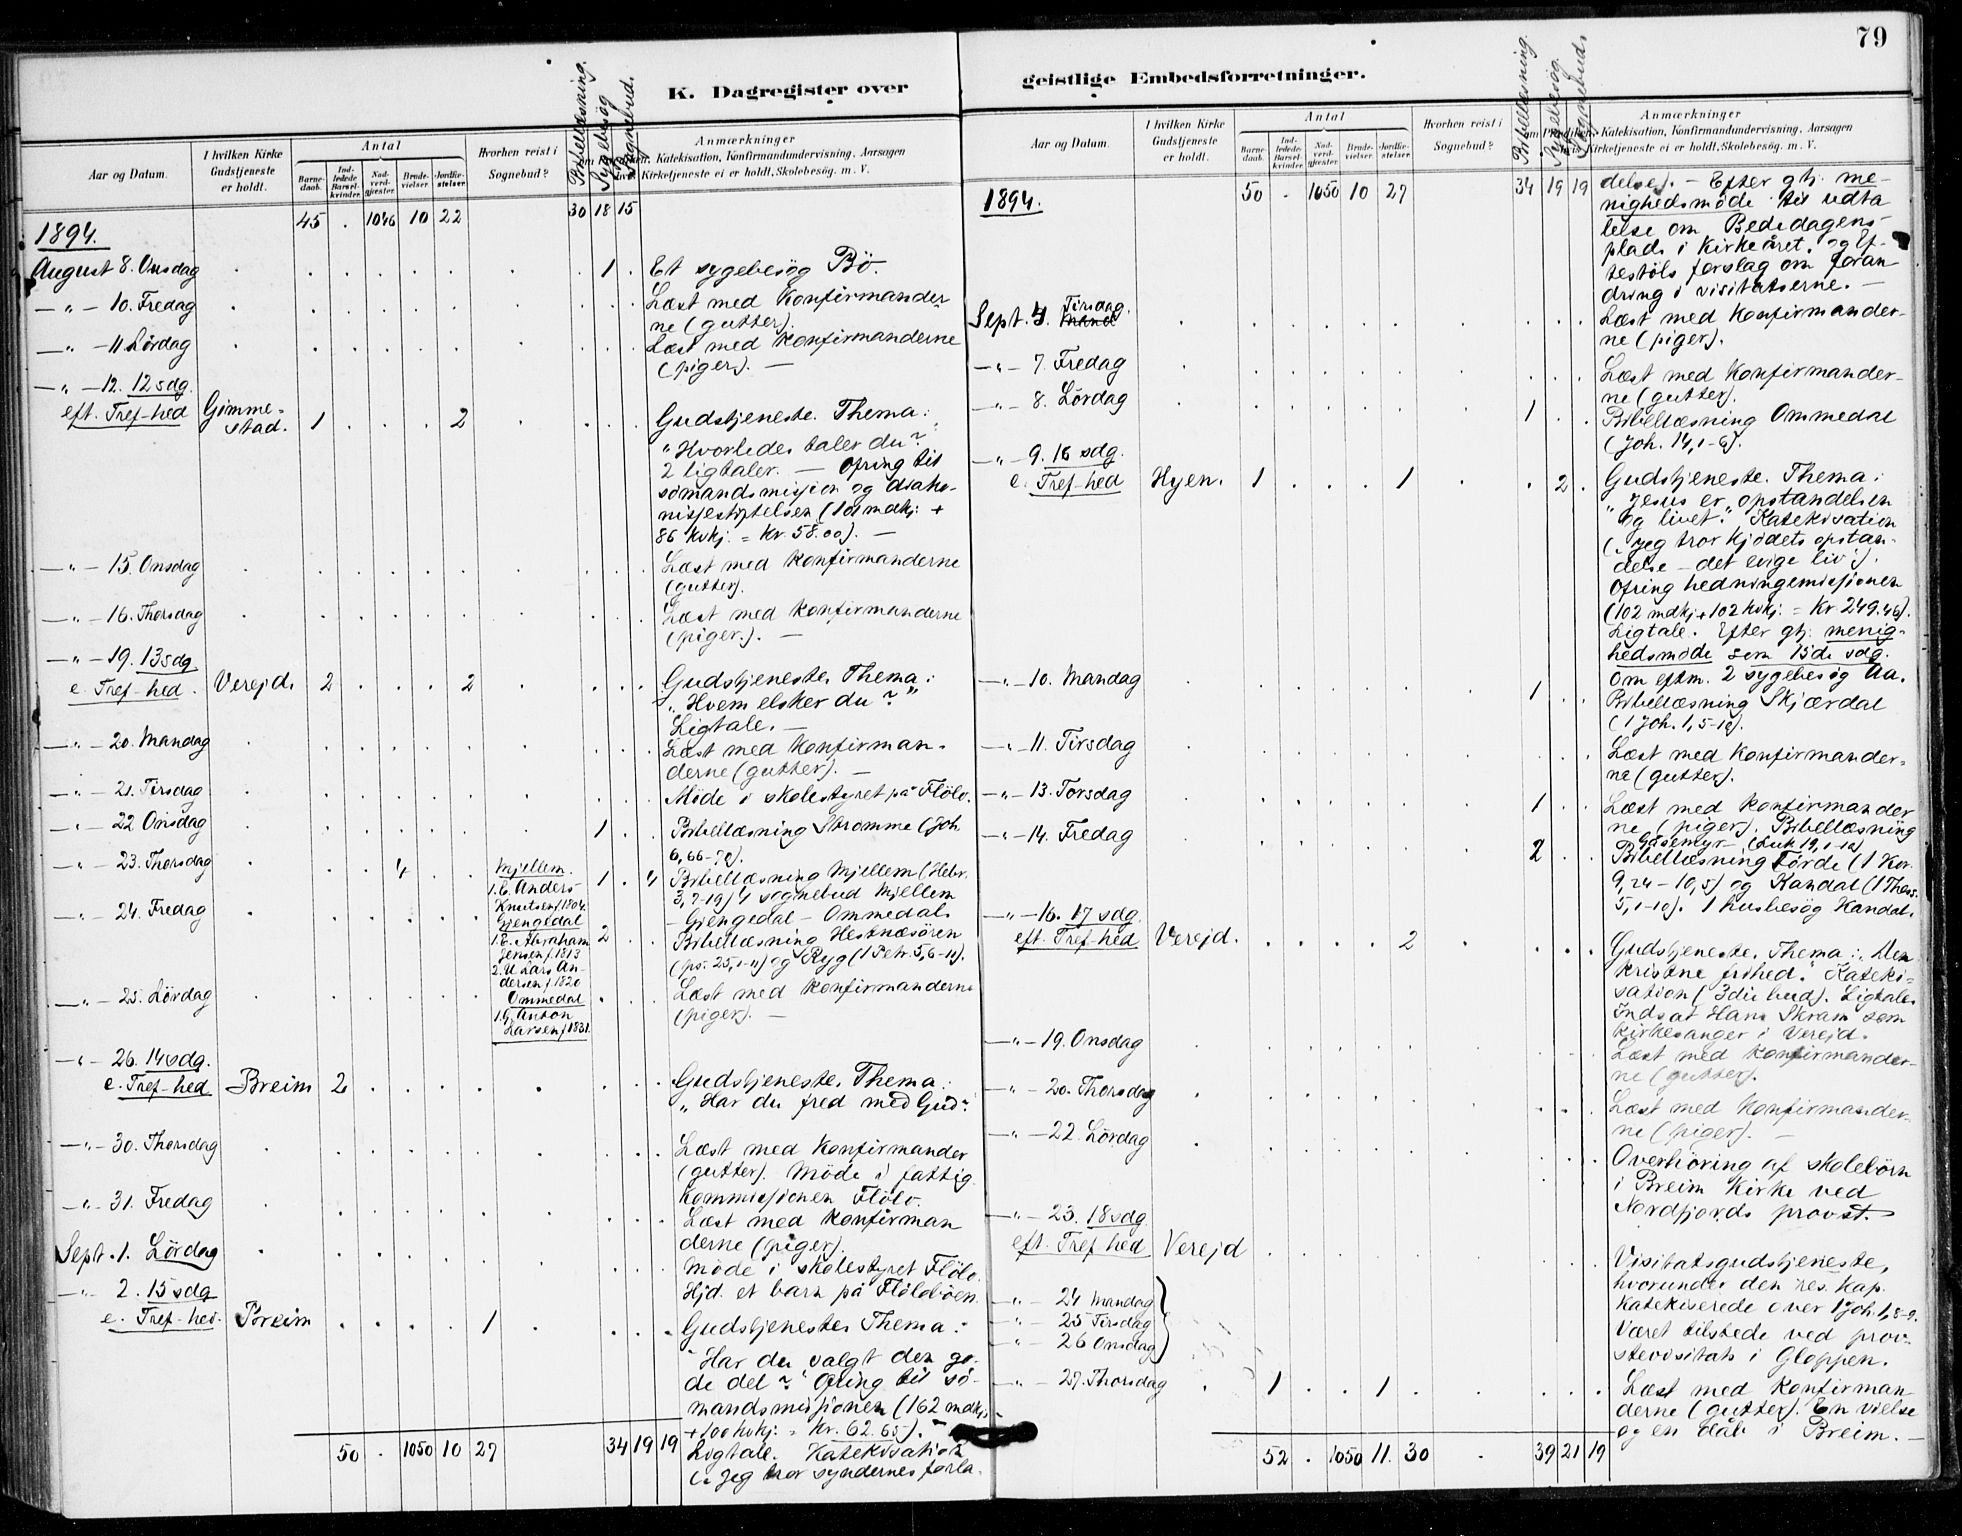 79
K. Dagregister over
geistlige Embedsforretninger.
Aar og Datum.
I hvilken Kirke
Gudstjeneste
er holdt.
Antal
Barne-
daab.
Ind-
ledede
Barsel-
kvinder.
Nad-
verd-
gjester
Brude-
vielser.
Jordfæ-
stelser
Hvorhen reist i
Sognebud?
Bibellæsning.
Sygebesøg
Sognebud.
Anmærkninger
Katekisation, Konfirmandundervisning, Aarsagen
Kirketjeneste ei er holdt, Skolebesøg. m. V.
1894.
45 . 1046 10 22 30 18 15
August 8. Onsdag 1
Et sygebesøg Bö.
— " — 10. Fredag
Læst med Konfirmander
ne (gutter).
— " — 11 Lördag
Læst med Konfirmanderne
(piger). —
— " — 12. 12 sdg.
eft. Tref-hed Gimme-
stad. 1 2
Gudstjeneste. Thema:
"Hvorledes taler du?"
2 ligtaler. — Ofring til
sömandsmisjon og diako-
nisjestiftelsen (101 mdkj: +
86 kvkj. = Kr. 58.00). —
— " — 15. Onsdag
Læst med Konfirmanderne
(gutter).
— " — 16. Thorsdag
Læst med Konfirmanderne
(piger.). —
— " — 19. 13 sdg
e. Tref-hed. Vereid. 2 2
Gudstjeneste. Thema:
"Hvem elsker du?"
Ligtale. —
— " — 20. Mandag
Læst med Konfirman-
derne (gutter). —
— " — 21. Tirsdag
Möde i skolestyret på Flölo.
— " — 22 Onsdag 1
Bibellæsning Stromme (Joh
6, 66-70).
— " — 23. Thorsdag 4
Mjellem. 1 . 4
1. E. Anders
Knutsen f. 1804.
Gjengedal
1. E. Abraham
Jensen f. 1813
2. U. Lars An-
dersen f. 1820
Ommedal
1. G. Anton
Larsen f. 1831.
Bibellæsning Mjellem (Hebr.
3, 7-19) 4 sognebud Mjellem
— Gjengedal — Ommedal.
— " — 24. Fredag 2
Bibellæsning Hestnæsören
(ps. 25, 1-11) og Ryg (1 Petr. 5, 6-11).
— " — 25. Lördag
Læst med Konfirmanderne
(piger). —
— " — 26. 14 sdg.
e. Tref-hed Breim 2
Gudstjeneste. Thema:
"Har du fred med Gud?
— " — 30. Thorsdag
Læst med Konfirmander
(gutter). Möde i fattig
kommissjonen Flölo.
— " — 31. Fredag
Læst med Konfirman
derne (piger).
Sept. 1. Lördag
Möde i skolestyret Flölo.
Hjd. et barn på Flöloböen.
— " — 2. 15 sdg
e. Tref-hed. Breim 1
Gudstjeneste. Thema:
"Har du valgt den go-
de del?" Ofring til sö-
mandsmisjonen (162 mdkj.
+ 100 kvkj: = Kr. 62.65). —
Ligtale. Katekisation
("Jeg tror syndernes forla-
50 . 1050 10 27 34 19 19
Aar og Datum.
I hvilken Kirke
Gudstjeneste
er holdt.
Antal
Barne-
daab.
Ind-
ledede
Barsel-
kvinder.
Nad-
verd-
gjester
Brude-
vielser.
Jordfæ-
stelser
Hvorhen reist i
Sognebud?
Bibellæsning.
Sygebesøg.
Sognebud.
Anmærkninger
Katekisation, Konfirmandundervisning, Aarsagen
hvis Kirketjeneste ei er holdt, Skolebesøg. m. V.
1894.
50 . 1050 10 27 34 19 19
delse). — Efter gtj. me-
nighedsmöde til udta
lelse om Bededagens
plads i kirkeåret, og Ef-
testöls forslag om foran
dring i visitatserne. —
Sept. 4. Tirsdag.
Læst med Konfirmander-
ne (piger).
— " — 7. Fredag
Læst med Konfirmander-
ne (gutter).
— " — 8. Lördag 1
Bibellæsning Ommedal
(Joh. 14, 1-6).
— " — 9. 16 sdg.
e. Tref-hed Hyen. 1 1 2
Gudstjeneste. Thema:
"Jesus er opstandelsen
og livet." Katekisation
("Jeg tror kjödets opstan-
delse — det evige liv").
Ofring hedningemissjonen
(102 mdkj + 102 kvkj: = Kr. 249.46).
Ligtale. Efter gtj. menig-
hedsmöde som 15de sdg.
Om eftm. 2 sygebesøg Aa.
— " — 10. Mandag 1
Bibellæsning Skjærdal
(1 Joh. 1, 5-10).
— " — 11. Tirsdag
Læst med Konfirmander-
ne (gutter).
— " — 13. Torsdag 1
Læst med Konfirmander
ne (piger). Bibellæsning
Gåsemyr — (Luk 19, 1-10)
— " — 14. Fredag 2
Bibellæsning Förde (1 Kor.
9, 24 — 10, 5) og Kandal (1 Thess.
5, 1-10). 1 husbesøg Kandal.
— " — 16. 17 sdg.
eft. Tref-hed Vereid. 2
Gudstjeneste. Thema: "Den
kristne frihed." Kateki-
sation (3die bud). Ligtale.
Indsat Hans Skram som
kirkesanger i Vereid.
— " — 19. Onsdag
Læst med Konfirmander-
ne (gutter).
— " — 20. Thorsdag
Læst med Konfirmander-
ne (piger). —
— " — 22. Lördag
Overhöring af skolebörn
i Breim Kirke ved
Nordfjords provst.
— " — 23. 18 sdg
eft. Tref-hed Vereid
Visitatsgudstjeneste,
hvorunder den res. Kap.
katekiserede over 1 Joh. 1, 8-9.
— " — 24 Mandag
— " — 25 Tirsdag
— " — 26 Onsdag
Været tilstede ved prov-
stevisitats i Gloppen.
— " — 27. Thorsdag 1 1
Læst med Konfirman
derne (gutter). En vielse
og en dåb i Breim. —
52 . 1050 11. 30 39 21 19